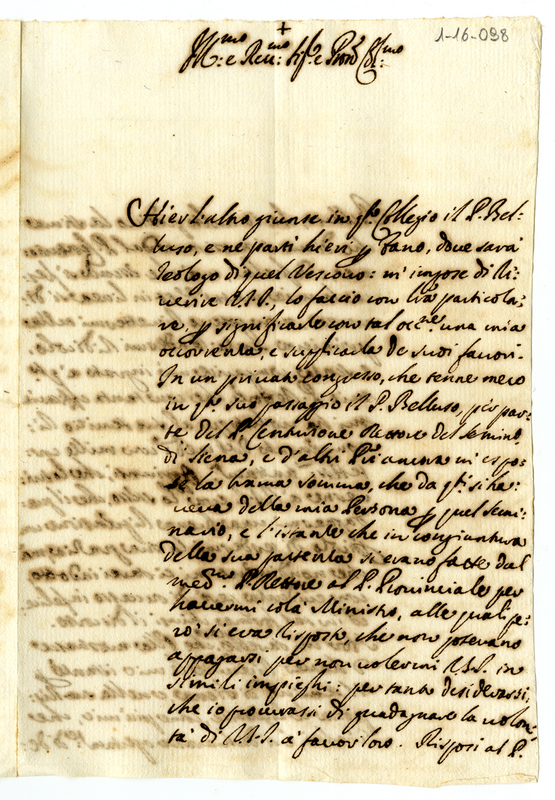 +
1-16-098
Ill.mo e Rev.mo Sig.e e Pron Col.mo
Hier l'altro giunse in q.to Collegio il P. Bel-
luso, e ne partì hieri p Fano, dove sarà
Teologo di quel Vescovo: m'impose di Ri-
verire V.S.I., lo faccio con particola-
re, p significarle con tal occ.ne una mia
occorrenza, e supplicarla de suoi favori.
In un privato congresso, che tenne meco
in q.to suo passaggio il P. Belluso, per par-
te del P. Centurione Rettore del Semin.o
di Siena, e d'altri P.ri ancora mi espo-
se la brama somma, che da q.ti si ha-
veva della mia Persona p quel Semi-
nario, e l'istante che in congiuntura
della sua partenza si erano fatte dal
med.mo P. Rettore al P. Provinciale per
havermi colà Ministro, alle quali pe-
rò si era Risposto, che non potevano
appagarsi per non volermi V.S.I. in
simili impieghi: per tanto desideravasi,
che io procurassi di guadagnare la volon-
tà di V.S.I. a favor loro. Risposi al P.